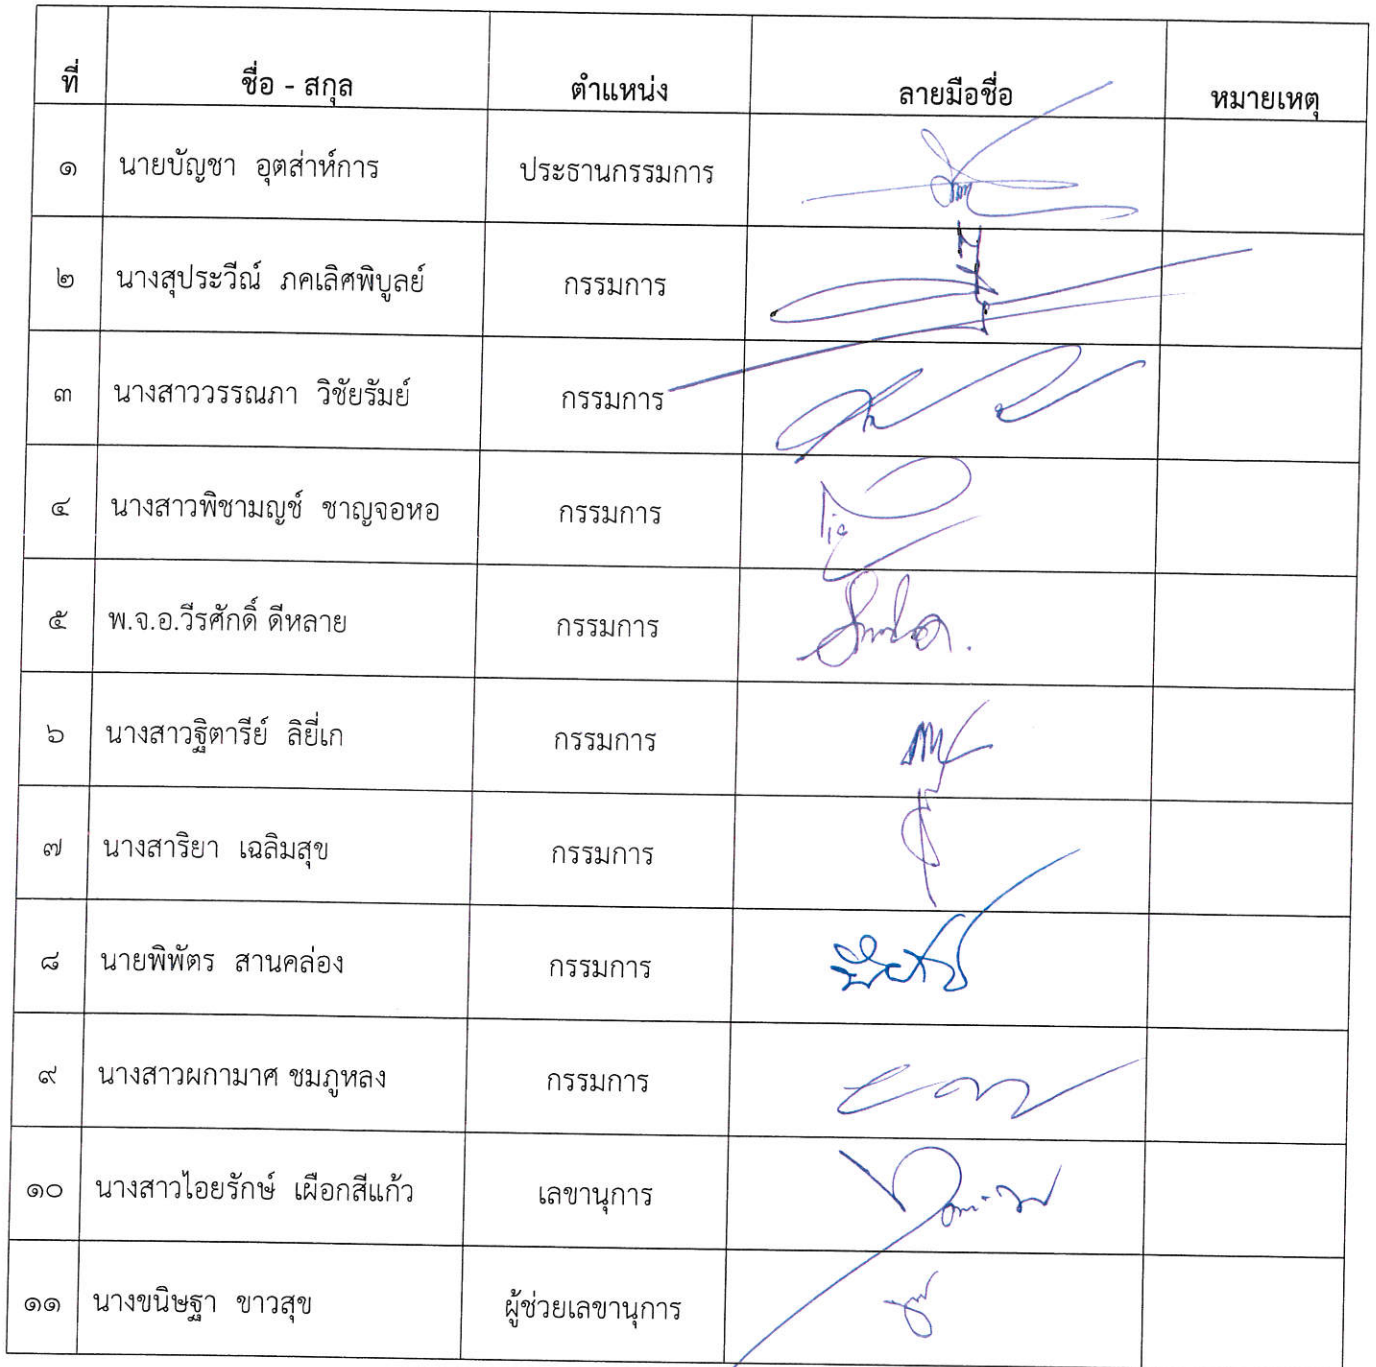 ที่ ชื่อ - สกุล ตำแหน่ง ลายมือชื่อ หมายเหตุ
๑ นายบัญชา อุตส่าห์การ ประธานกรรมการ
๒ นางสุประวีณ์ ภคเลิศพิบูลย์ กรรมการ
๓ นางสาววรรณภา วิชัยรัมย์ กรรมการ
๔ นางสาวพิชามญช์ ชาญจอหอ กรรมการ
๕ พ.จ.อ.วีรศักดิ์ ดีหลาย กรรมการ
๖ นางสาวฐิตารีย์ ลิยี่เก กรรมการ
๗ นางสาริยา เฉลิมสุข กรรมการ
๘ นายพิพัตร สานคล่อง กรรมการ
๙ นางสาวผกามาศ ชมภูหลง กรรมการ
๑๐ นางสาวไอยรักษ์ เผือกสีแก้ว เลขานุการ
๑๑ นางขนิษฐา ขาวสุข ผู้ช่วยเลขานุการ